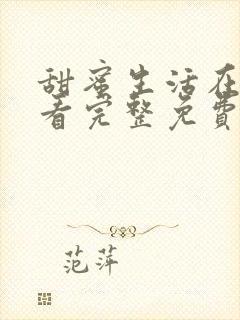 甜蜜生活在
看完整免费
范萍